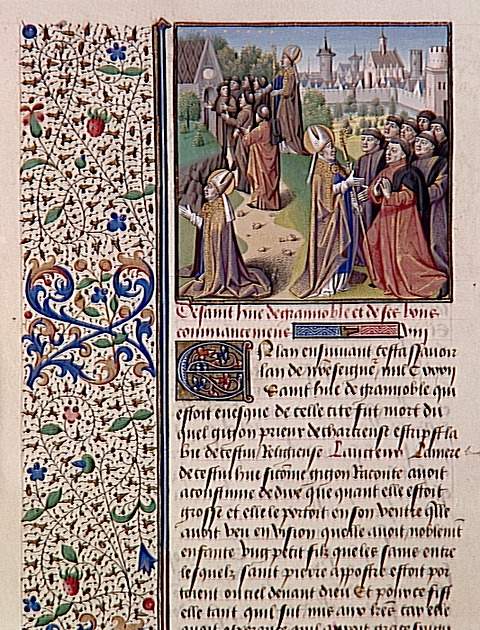 De saint hue de grannoble et de ses bons
commancemens
En lan ensuiuant cestassauoir
lan de nostreseign̄r mil C
Saint hue de grannoble qui
estoit euesque de celle cite fut mort du
quel guigon prieur de chartreuse escripst la
vie de cestui Religieuse La mere
de cestui hue sicōme guigon Raconte auoit
acoustume de dire que quant elle estoit
grosse et elle le portoit en son ventre q̄lle
auoit veu en vision quelle auoit noblemēt
enfante vng petit filz que les sains entre
lesquelz saint pierre appostre estoit por
toient ou ciel deuant dieu Et pource sist
elle tant quil fut mis aux